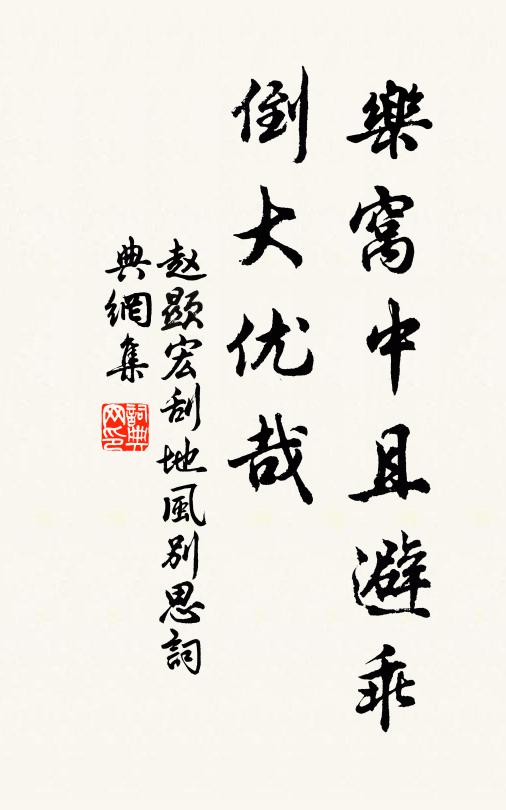 樂窩中且避乖
倒大优哉
赵顯宏刮地風别思詞
典網集
詞典
网印